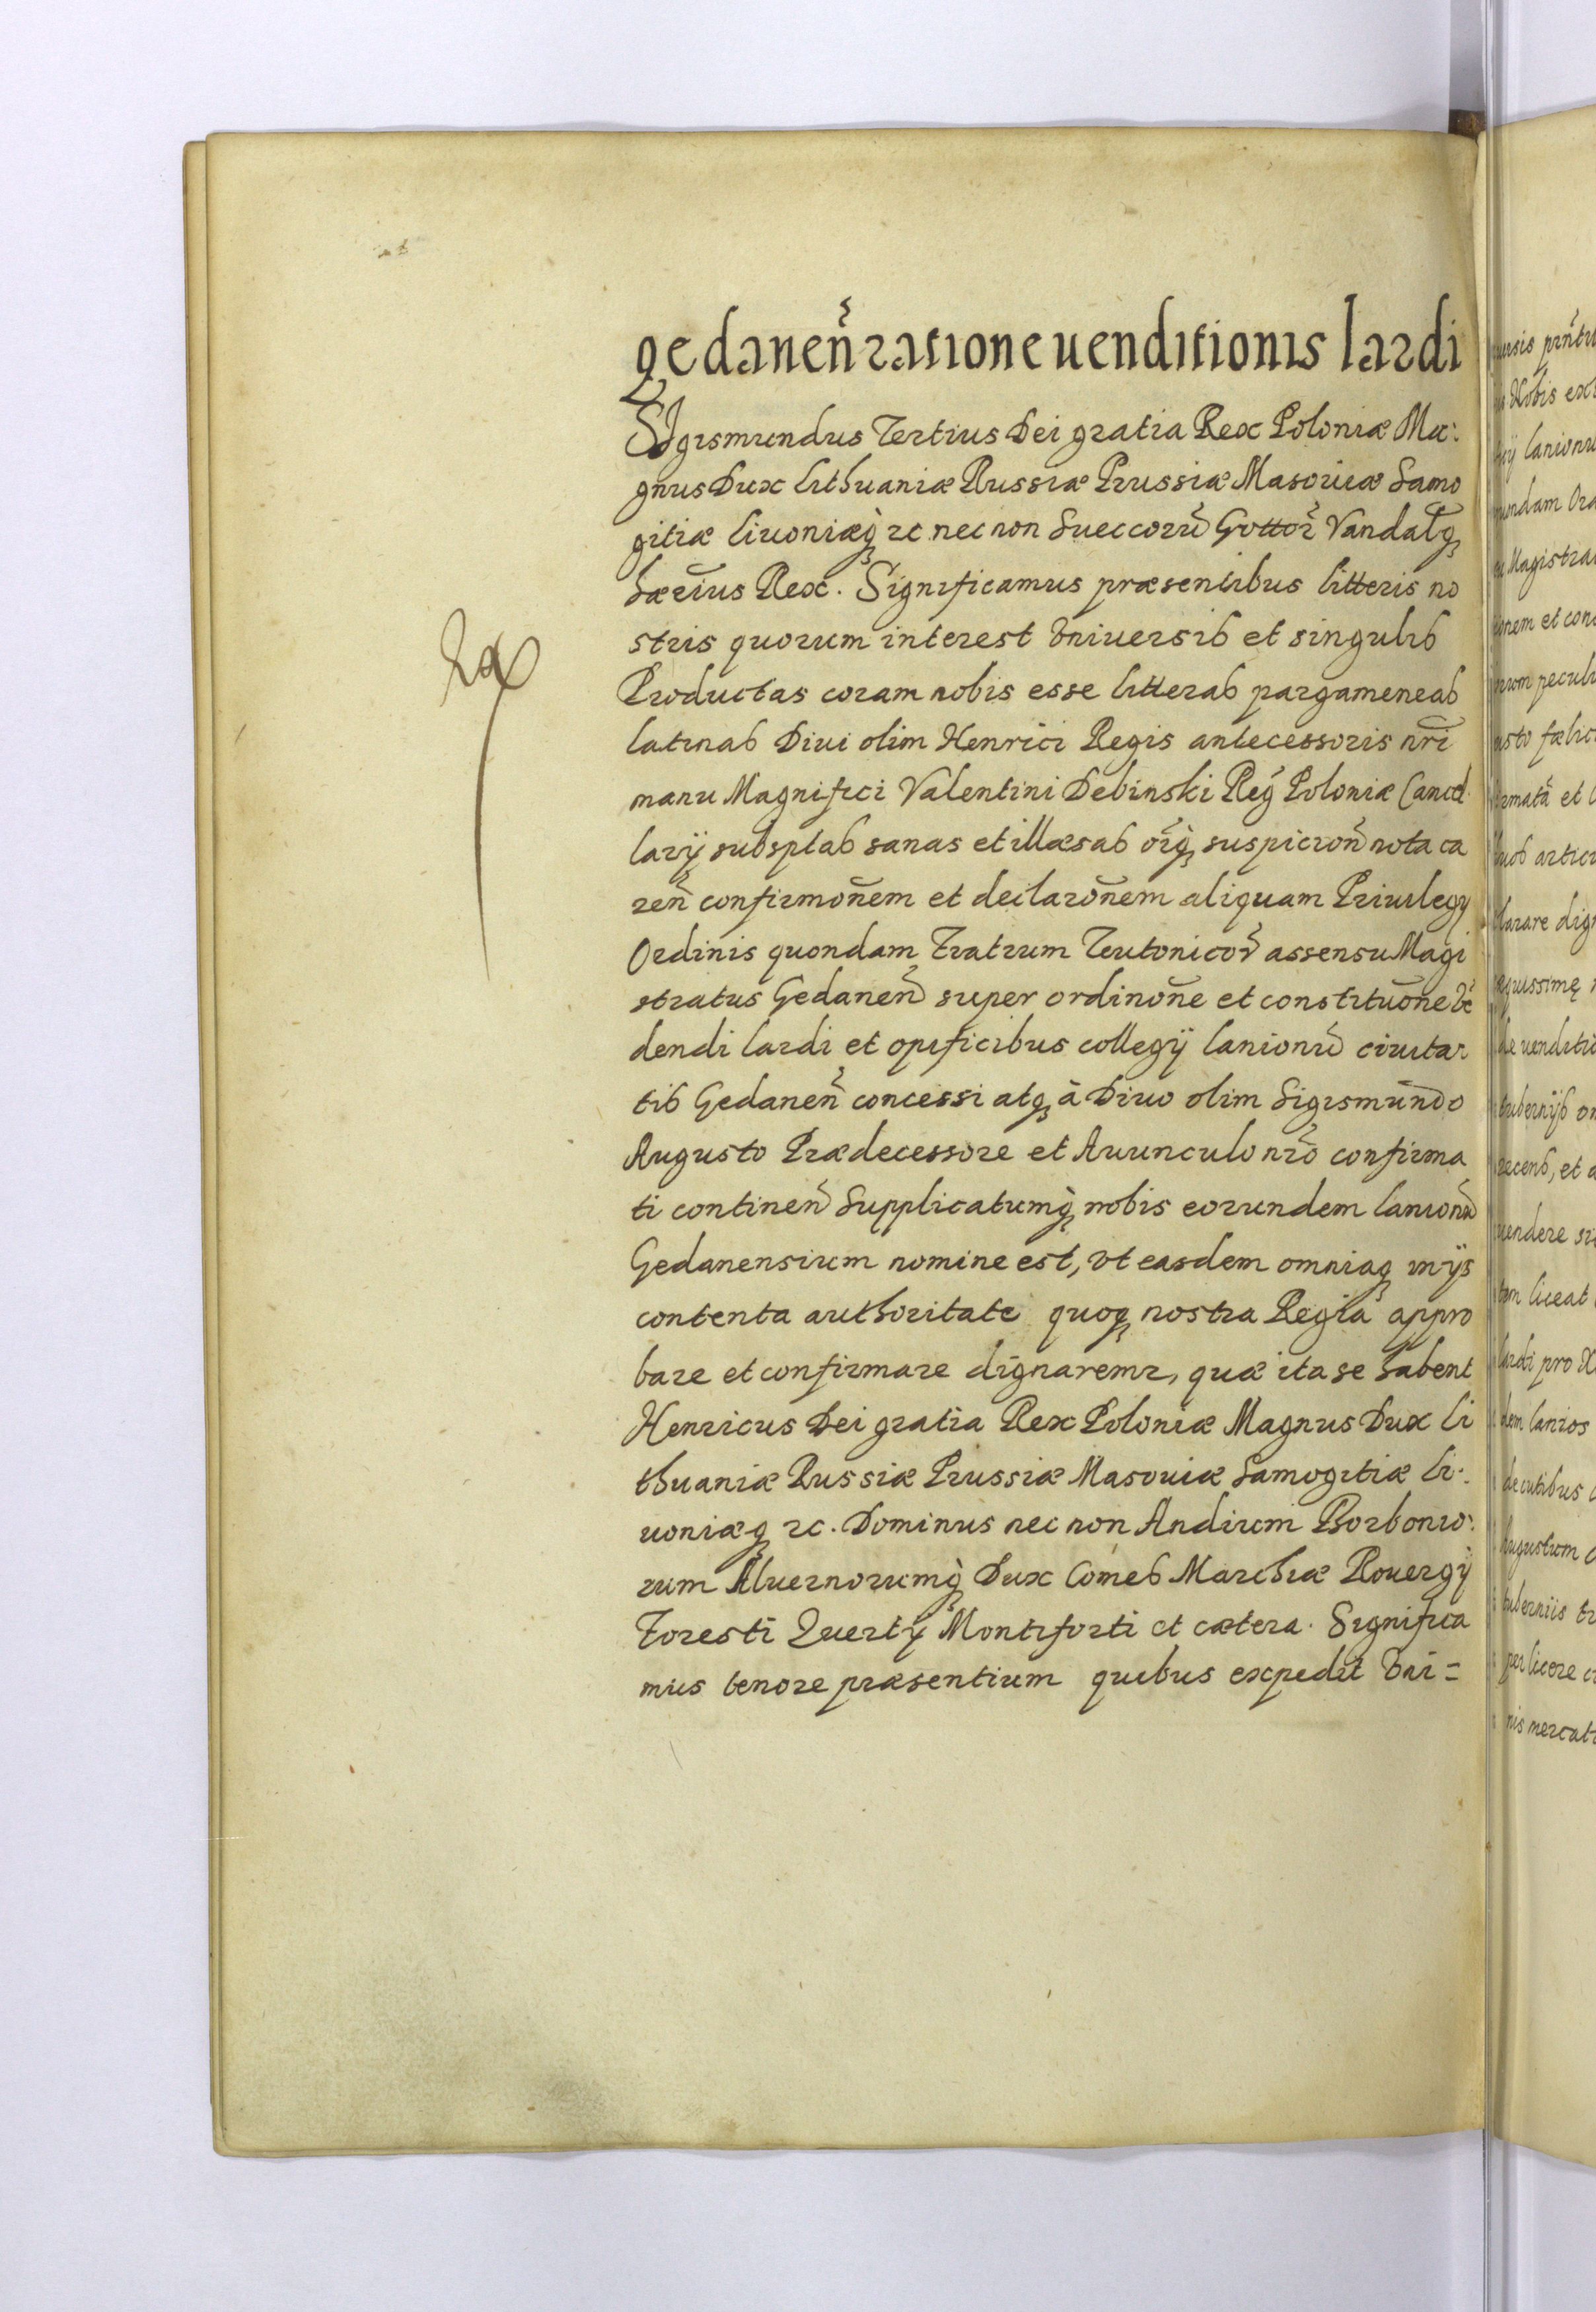 gedanen̄ ratione uenditionis lardi
SIgismundus Tertius Dei gratia Rex Poloniæ Ma:
gnus Dux Lithuaniæ Russiæ Prussiæ Masouiæ Samo
gitiæ Liuoniæq̃ ꝛc nec non Sueccorũ Gottoꝝ Vandalq̃
hærius Rex. Significamus præsentibus litteris no
stris quorum interest Vniuersis et singulis
Productas coram nobis esse litteras pargameneas
latinas Diui olim Henrici Regis antecessoris nr̃i
manu Magnifici Valentini Debinski Reg̃ Poloniæ Cancel
larij subsptas sanas et illæsas oı̃q̃ suspicion̄ nota ca
ren̄ confirmon̄em et declaron̄em aliquam Priuilegij
Ordinis quondam Fratrum Teutonicoꝝ assensu Magi
stratus Gedanen̄ super ordinon̄e et constituon̄e vē
dendi lardi et opificibus collegij lanionũ ciuita
tis Gedanen̄ concessi atq̃ à Diuo olim Sigismundo
Augusto Prædecessore et Auunculo nr̃o confirma
ti continen̄ Supplicatumq̃ nobis eorundem lanionũ
Gedanensium nomine est, vt easdem omniaq̃ in ijs
contenta authoritate quoq̃ nostra Regia appro
bare et confirmare dignaremr, quæ ita se habent
Henricus Dei gratia Rex Poloniæ Magnus Dux Li
thuaniæ Russiæ Prussiæ Masouiæ Samogitiæ Li:
uoniæq̃ ꝛc. Dominus nec non Andium Borbonio:
rum Aluernorumq̃ Dux Comes Marchiæ Rouergij
Foresti Querty Montiforti et cætera. Significa
mus tenore præsentium quibus expedit Vni=